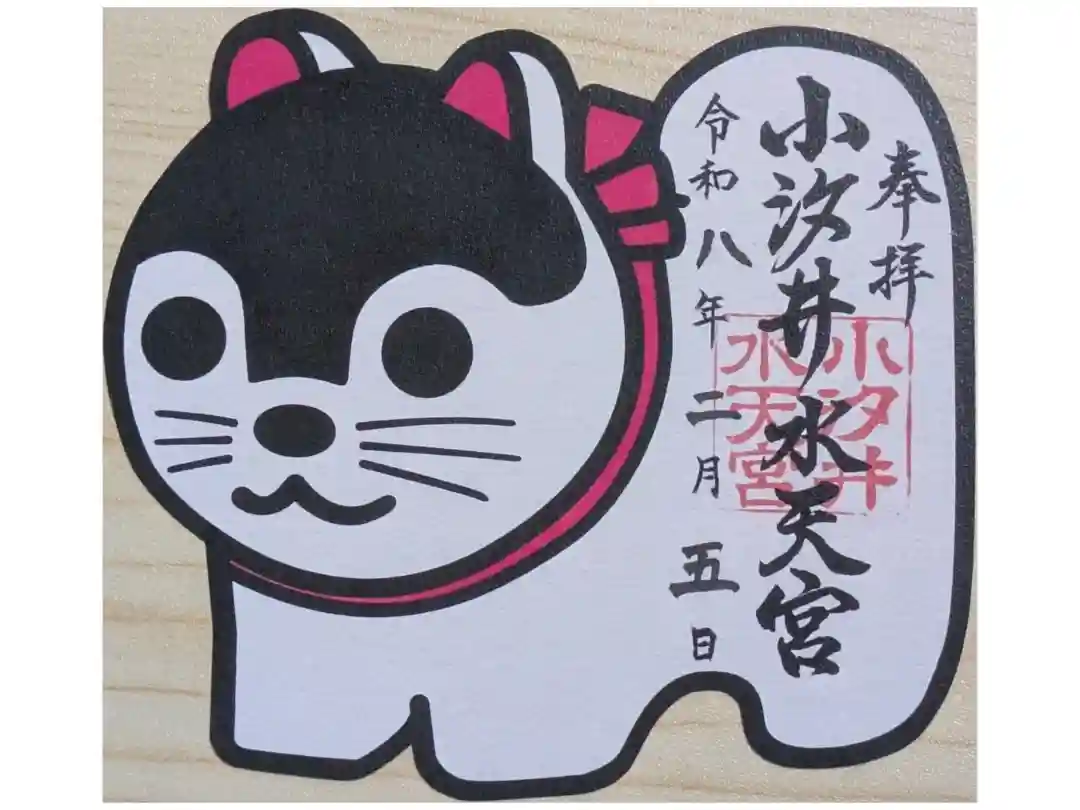 奉拝
小汐井水天宮
令和八年二月五日
小汐井
水天宮